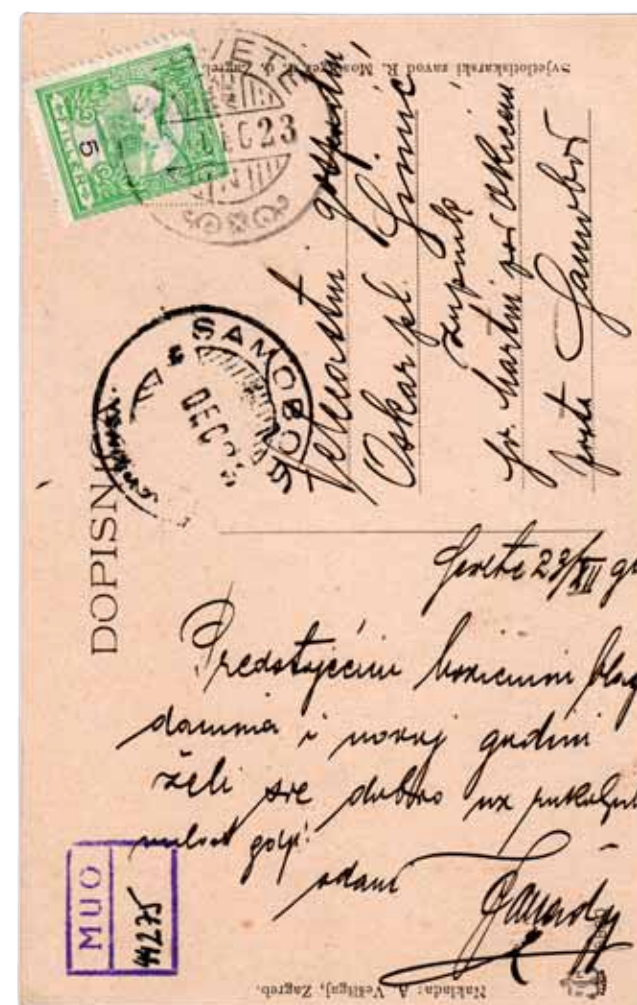 Svjetlotiskarski zavod R. Mosinger d. d. Zagreb.
FILLER
5
DEC 23
SAMOBOR
DEC 23
DOPISNICA
Velečastni gospodin
Oskar pl.
župnik
Sv. Martin pod Okićem
pošta Samobor
23/XII
Predstojećim božićnim blag
danima i novoj godini
želi sve dobro uz rukoljub
milost. gosp.
odani
MUO
44275
Naklada: A. Vešligaj, Zagreb.